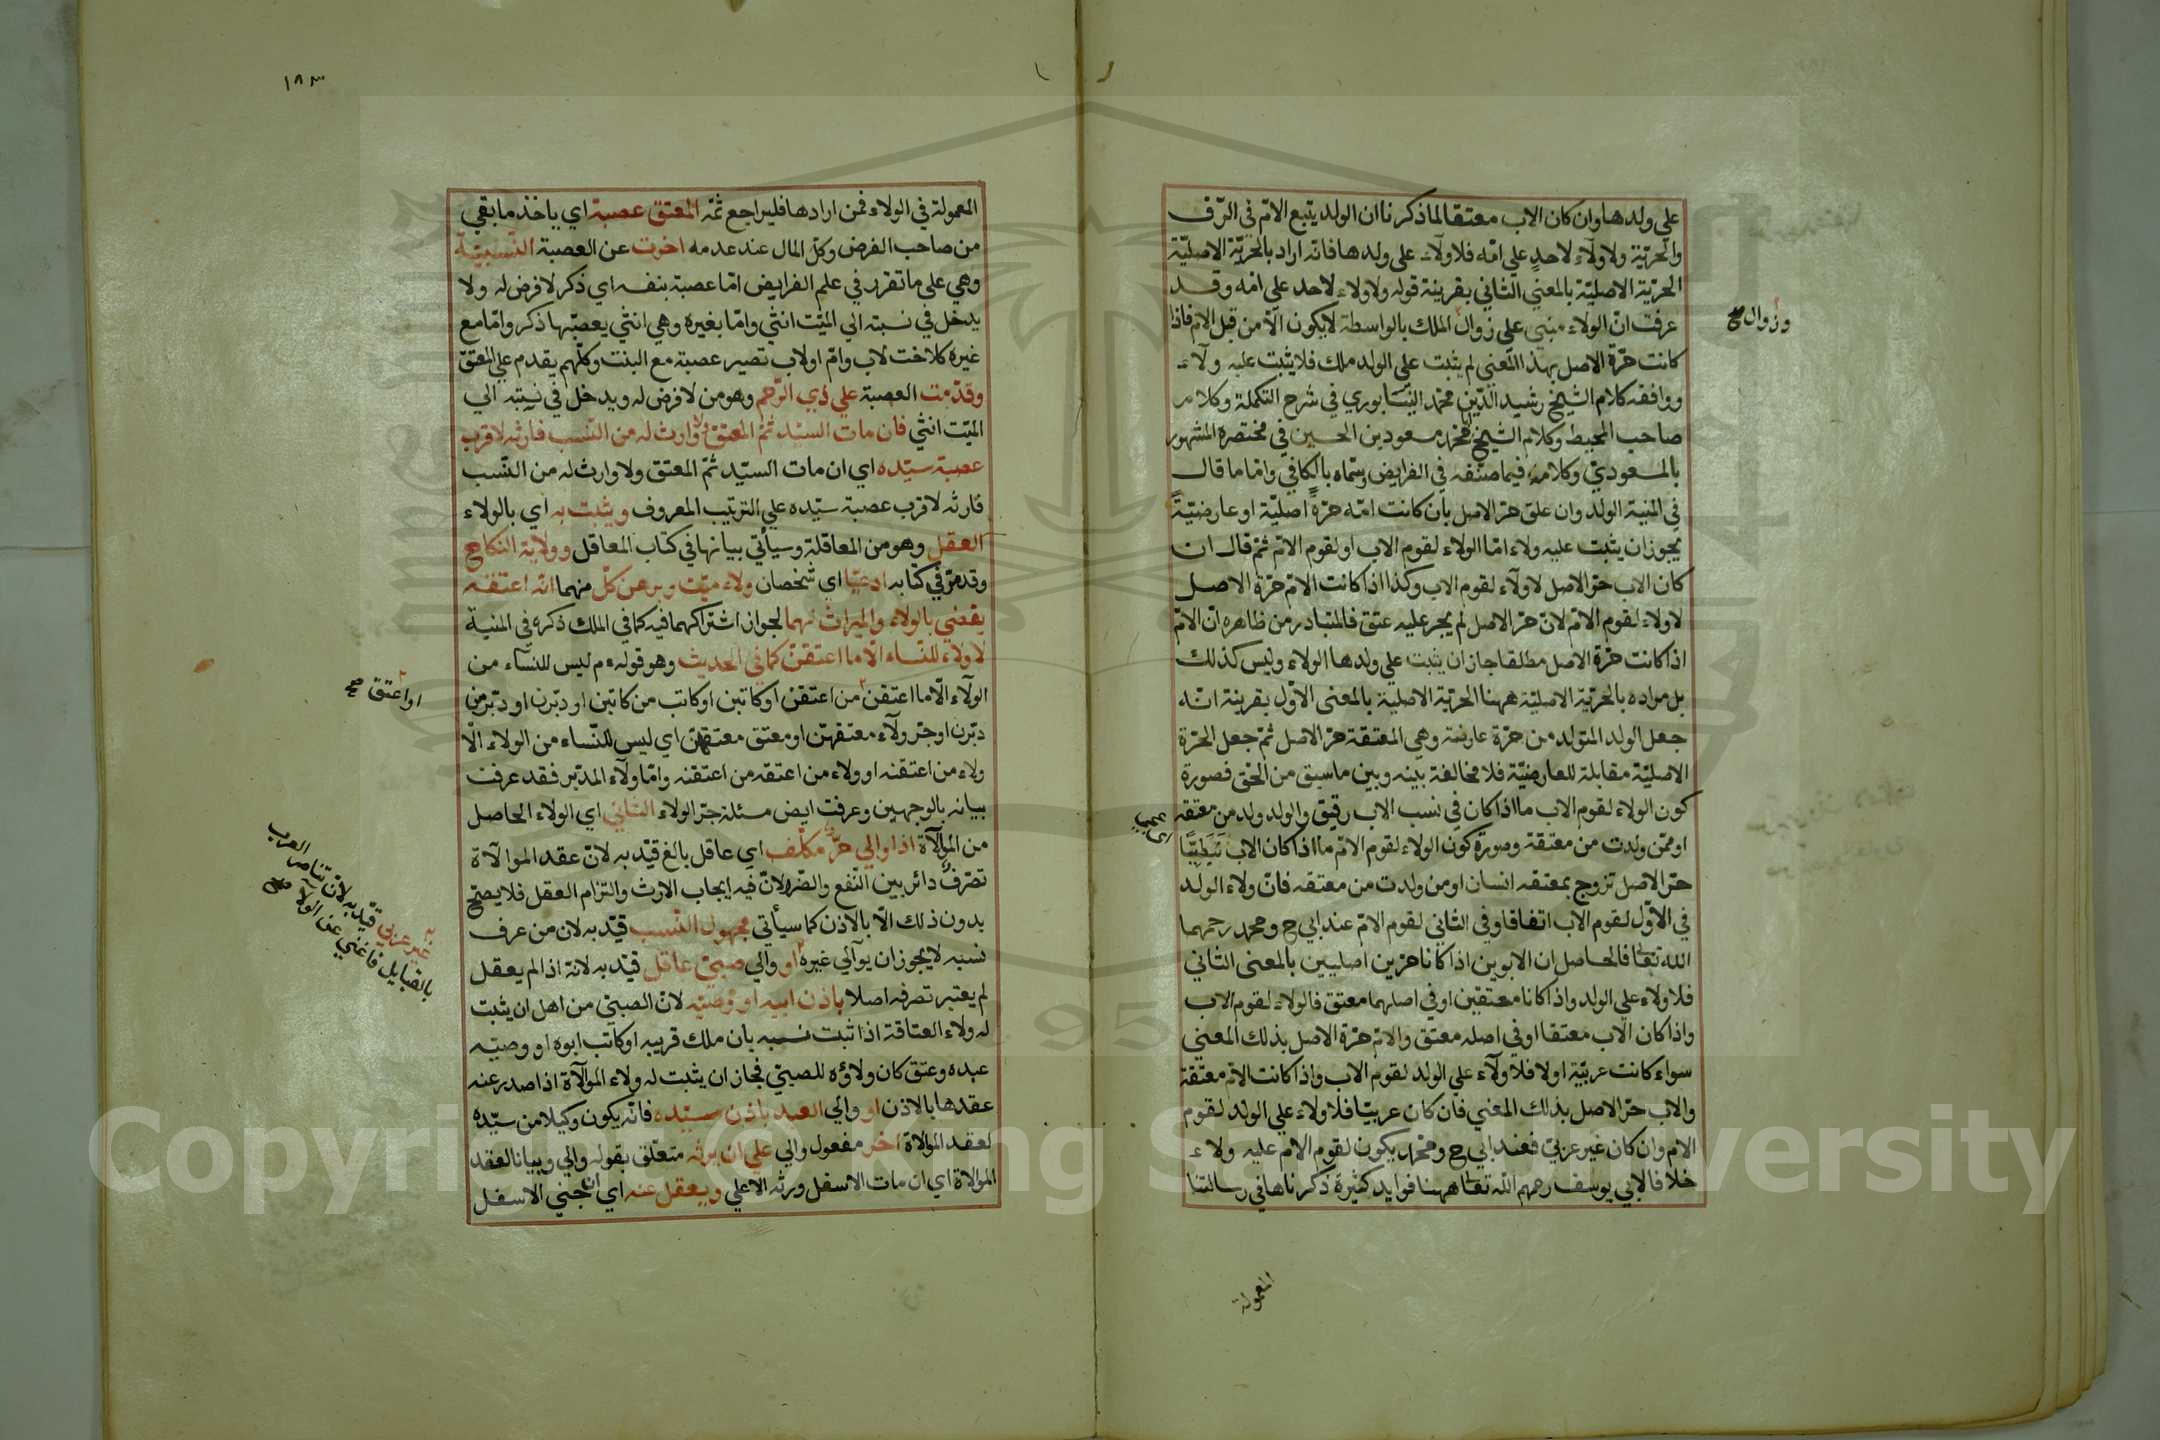 علي ولدها وان كان الاب معتقا لما ذكرنا ان الولد يتبع الام في الرق
والحرية ولا ولاء لاحد علي امه فلا ولاء علي ولدها فانه اراد بالحرية الاصلية
الحرية الاصلية بالمعني الثاني بقرينة قوله ولا ولاء لاحد علي امه وقد
عرفت ان الولاء مبني علي زوال الملك بالواسطة لا يكون الا من قبل الام فاذا
وزوال صح
كانت حرة الاصل بهذا المعني لم يثبت علي الولد ملك فلا يثبت عليه ولاء
ووافقه كلام الشيخ رشيد الدين محمد النيسابوري في شرح التكملة وكلام
صاحب المحيط وكلام الشيخ محمد مسعود بن الحسين في مختصره المشهور
بالمسعودي وكلامه فيما صنفه في الفرايض وسماه بالكافي واما ما قال
في المنية الولد وان علق حر الاصل بان كانت امه حرة اصلية او عارضية
يجوز ان يثبت عليه ولاء اما الولاء لقوم الاب او لقوم الام ثم قال ان
كان الاب حر الاصل لا ولاء لقوم الاب وكذا اذا كانت الام حرة الاصل
لا ولاء لقوم الام لان حر الاصل لم يجر عليه عتق فالمتبادر من ظاهره ان الام
اذا كانت حرة الاصل مطلقا جاز ان يثبت علي ولدها الولاء وليس كذلك
بل مراده بالحرية الاصلية ههنا الحرية الاصلية بالمعنى الاول بقرينة انه
جعل الولد المتولد من حرة عارضة وهي المعتقة حر الاصل ثم جعل الحرة
الاصلية مقابلة للعارضية فلا مخالفة بينه وبين ما سبق من الحق فصورة
كون الولاء لقوم الاب ما اذا كان في نسب الاب رقيق والولد ولد من معتقه
او ممن ولدت من معتقة وصورة كون الولاء لقوم الام ما اذا كان الاب نبطيا
حر الاصل تزوج بمعتقه انسان او من ولدت من معتقه فان ولاء الولد
في الاول لقوم الاب اتفاقا وفي الثاني لقوم الام عند ابي ح ومحمد رحمهما
الله تعا فالحاصل ان الابوين اذا كانا حرين اصليين بالمعنى الثاني
فلا ولاء علي الولد واذا كانا معتقين او في اصلهما معتق فالولاء لقوم الاب
واذا كان الاب معتقا او في اصله معتق والام حرة الاصل بذلك المعني
سواء كانت عربية اولا فلا ولاء علي الولد لقوم الاب واذا كانت الام معتقة
والاب حر الاصل بذلك المعني فان كان عربيا فلا ولاء علي الولد لقوم
الام وان كان غير عربي فعند ابي ح ومحمد يكون لقوم الام عليه ولاء
خلافا لابي يوسف رحمهم الله تعا ههنا فوايد كثيرة ذكرناها في رسالتنا
المعمولة
١٨٣
المعمولة في الولاء فمن ارادها فليراجع ثمه المعتق عصبة اي ياخذ ما بقي
من صاحب الفرض وكل المال عند عدمه اخرت عن العصبة النسبية
وهي علي ما تقرر في علم الفرايض اما عصبة بنفسه اي ذكر لا فرض له ولا
يدخل في نسبته الي الميت انثي واما بغيره وهي انثي يعصبها ذكر واما مع
غيره كلاخت لاب وام او لاب تصير عصبة مع البنت وكلهم يقدم علي المعتق
وقدمت العصبة علي ذي الرحم وهو من لا فرض له ويدخل في نسبته الي
الميت انثي فان مات السيد ثم المعتق ولا وارث له من النسب فارثه لاقرب
عصبة سيده اي ان مات السيد ثم المعتق ولا وارث له من النسب
فارثه لاقرب عصبة سيده علي الترتيب المعروف ويثبت به اي بالولاء
العقل وهو من المعاقلة وسيأتي بيانها في كتاب المعاقل وولاية النكاح
وقد مر في كتابه ادعيا اي شخصان ولاء ميت وبرهن كل منهما انه اعتقه
يقضي بالولاء والميراث لهما لجواز اشتراكهما فيه كما في الملك ذكره في المنية
لا ولاء للنساء الا ما اعتقن كما في الحديث وهو قوله ءم ليس للنساء من
الولاء الا ما اعتقن من اعتقن او كاتبن او كاتب من كاتبن او دبرن او دبر من
او اعتق صح
دبرن او جر ولاء معتقهن او معتق معتقهن اي ليس للنساء من الولاء الا
ولاء من اعتقنه او ولاء من اعتقه من اعتقنه واما ولاء المدبر فقد عرفت
بيانه بالوجهين وعرفت ايض مسئلة جر الولاء الثاني اي الولاء الحاصل
من الموالاة اذا والي حر مكلف اي عاقل بالغ قيد به لان عقد الموالاة
تصرف دائر بين النفع والضر ولان فيه ايجاب الارث والتزام العقل فلا يصح
بدون ذلك الا بالاذن كما سيأتي مجهول النسب قيد به لان من عرف
نسبه لا يجوز ان يوالي غيره او والي صبي عاقل قيد به لانه اذا لم يعقل
غير عربي قيد به لان تناصر العرب
بالقبايل فاغني عن الولاء صح
لم يعتبر تصرفه اصلا باذن ابيه او وصيه لان الصبي من اهل ان يثبت
له ولاء العتاقة اذا ثبت نسبه بان ملك قريبه او كاتب ابوه او وصيه
عبده وعتق كان ولاؤه للصبي فجاز ان يثبت له ولاء الموالاة اذا صدر عنه
عقدها بالاذن او والي العبد باذن سيده فانه يكون وكيلا من سيده
لعقد الموالاة اخر مفعول والي علي ان يرثه متعلق بقوله والي وبيان العقد
الموالاة اي ان مات الاسفل ورثه الاعلي ويعقل عنه اي ان جني الاسفل
Copyright © King Saud University